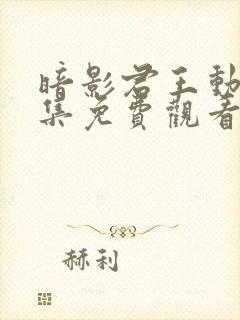 暗影君王動
集免費觀看
赫利